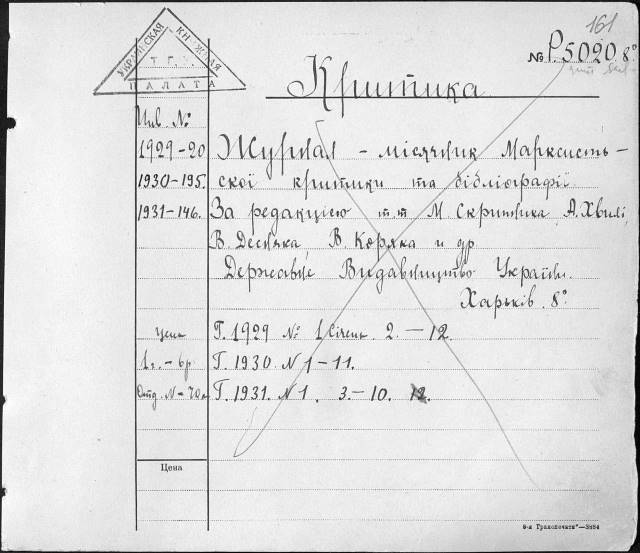 161
№ Р.5020 8°
УКРАИНСКАЯ КНИЖНАЯ
ПАЛАТА
Критика
Инв №
1929-20
1930-195.
1931-146.
Журнал - місячник Марксисть-
ської критики та бібліографії
За редакцією т.т М. Скрипника, А. Хвилі,
В. Десняка В. Коряка и др.
Державне Видавництво України.
Харьків. 8°
Цена
1 г. - 6 р
Отд. №-70к
Г. 1929 № 1 Січень. 2. — 12.
Г. 1930. N 1-11.
Г. 1931. N 1. 3.-10. 12.
Цена